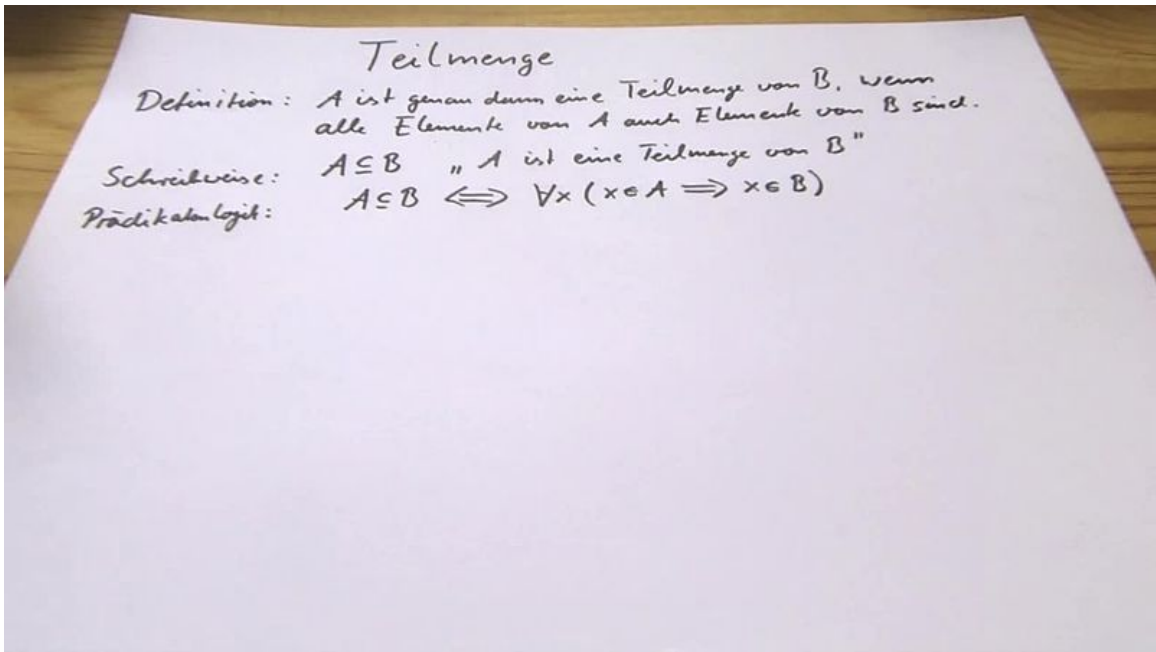 Teilmenge
Definition: A ist genau dann eine Teilmenge von B, wenn
alle Elemente von A auch Elemente von B sind.
Schreibweise: A ⊆ B „A ist eine Teilmenge von B"
Prädikatenlogik: A ⊆ B ⟺ ∀x (x ∈ A ⟹ x ∈ B)